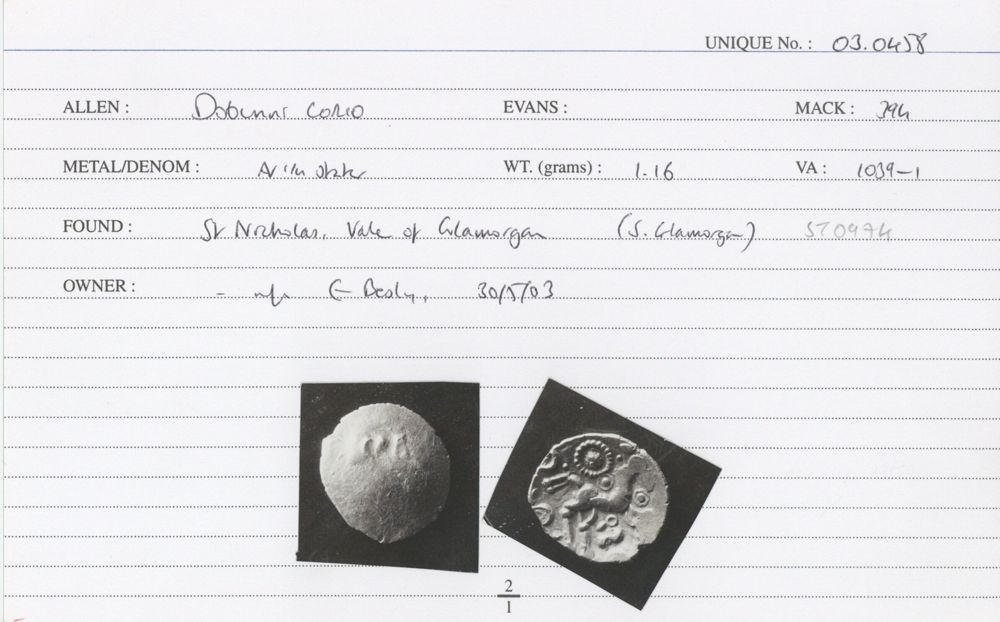 UNIQUE No.: 03.0458
ALLEN: Dobunni CORIO EVANS: MACK: 394
METAL/DENOM: AV 1/4 stater WT. (grams): 1.16 VA: 1039-1
FOUND: St Nicholas, Vale of Glamorgan (S. Glamorgan) ST0974
OWNER: - E Besly, 30/5/03
2
1